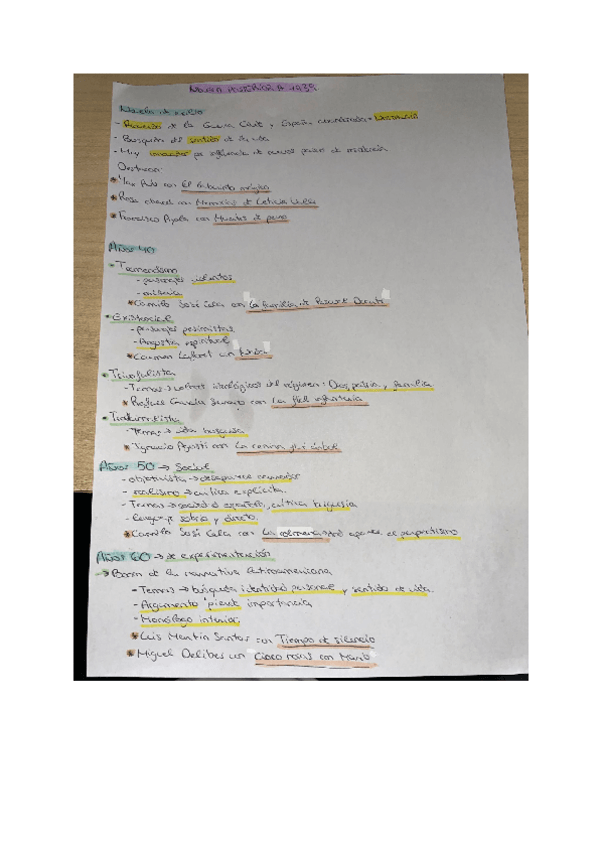 Novela posterior a 1939
Novela de exilio
- Recuerdo de la Guerra Civil y España abandonada → Destrucción
- Búsqueda del sentido de la vida
- Muy innovador por influencia de nuevos países de
Destacan:
* Max Aub con El laberinto mágico
* Rosa Chacel con Memorias de Leticia Valle
* Francisco Ayala con Muertes de perro
Años 40
• Tremendismo
- personajes violentos
- miseria
* Camilo José Cela con La familia de Pascual Duarte
• Existencial
- personajes pesimistas
- Angustia espiritual
* Carmen Laforet con Nada
• Triunfalista
- Temas → valores ideológicos del régimen: Dios, patria y familia
* Rafael García Serrano con La fiel infantería
• Tradicionalista
- Temas → vida burguesa
* Ignacio Agustí con La ceniza fue árbol
Años 50 → Social
- objetivista → desaparece narrador
- realismo → crítica explícita.
- Temas → sociedad española, crítica burguesía
- lenguaje sobrio y directo.
* Camilo José Cela con La colmena aparece el perspectivismo
Años 60 → de experimentación
→ Boom de la narrativa latinoamericana
- Temas → búsqueda identidad personal y sentido de vida.
- Argumento pierde importancia
- Monólogo interior
* Luis Martín Santos con Tiempo de silencio
* Miguel Delibes con Cinco horas con Mario